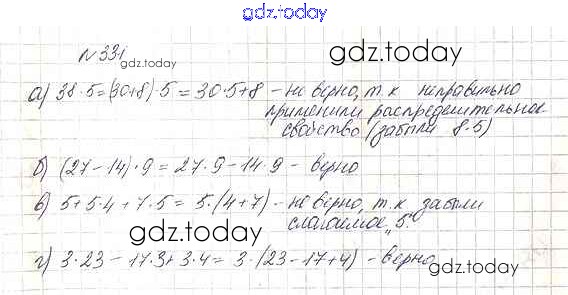 gdz.today
N 331
gdz.today
gdz.today
а) 38·5=(30+8)·5=30·5+8 - не верно, т.к неправильно
применили распределительное
свойство (забыли 8·5)
б) (27-14)·9=27·9-14·9 - верно
в) 5+5·4+7·5=5·(4+7) - не верно, т.к забыли
слагаемое „5.
gdz.today
г) 3·23-17·3+3·4=3·(23-17+4) - верно
gdz.today